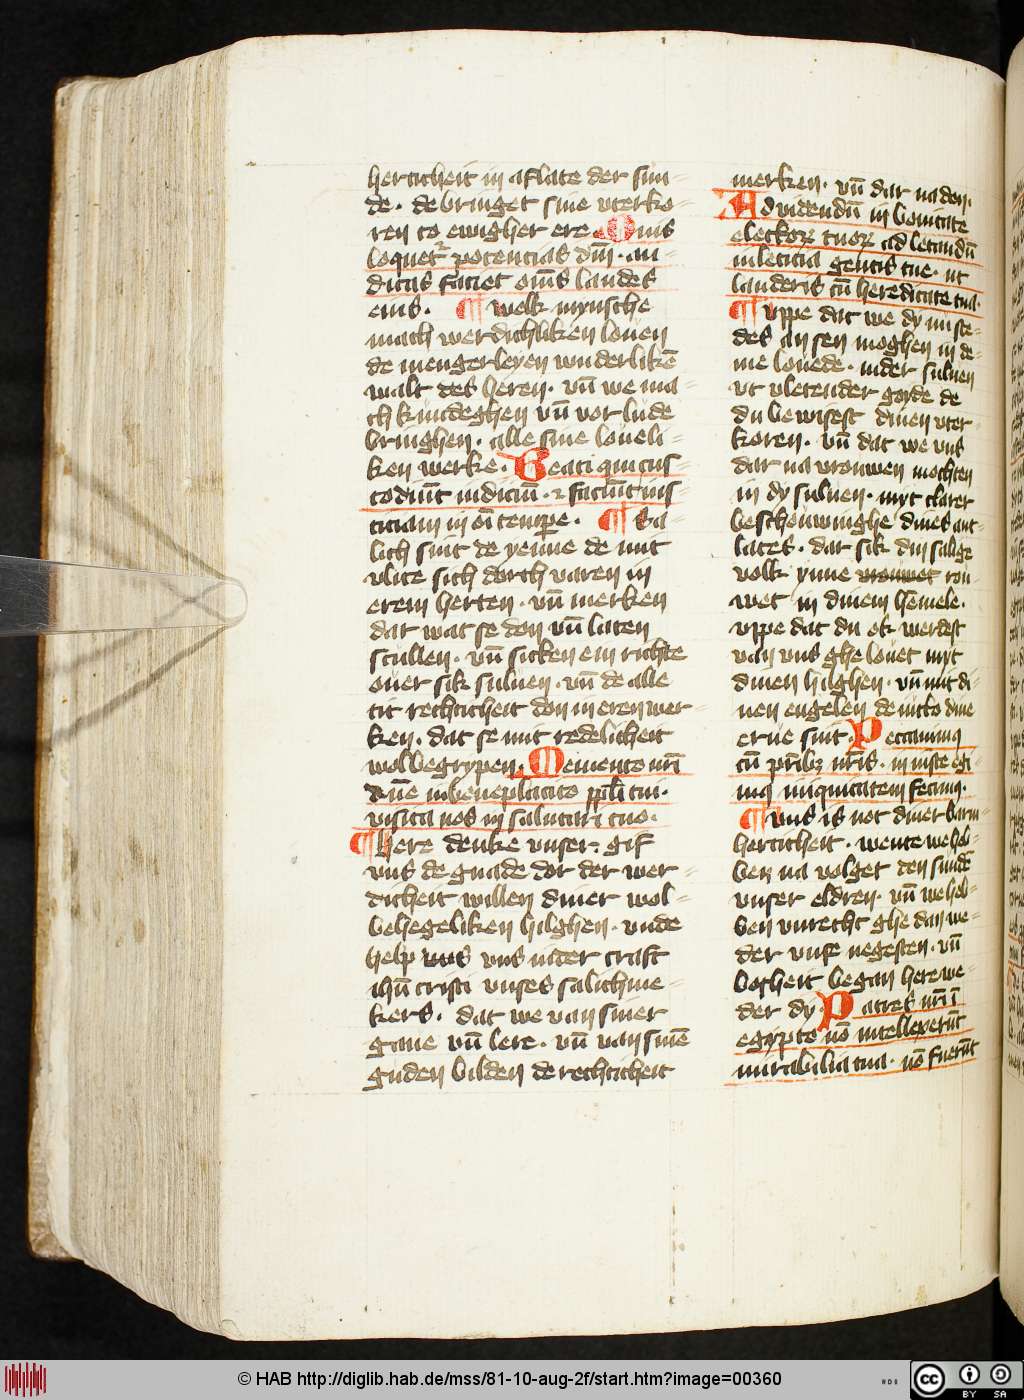 herticheit in aflate der sun-
de· de bringet sine vterko-
ren to ewigher ere· Quis
loquetr potencias dm̄· au-
ditas faciet om̄s laudes
eius· ¶ welk mynsche
mach werdichliken louen
de mengerleyen wnderlikē
walt des heren· vn̄ we ma-
ch kundeghen vn̄ vor lude
bringhen· alle sine loueli-
ken werke· Beati qui cus-
todiūt iudiciū· ⁊ faciūt ius-
ticiam in oī tempe· ¶ Sa-
lich sint de yenne de mit
vlite sich dorch varen in
erem herten· vn̄ merken
dar wat se don vn̄ laten
scullen· vn̄ sitken ein richte
ouer sik suluen· vn̄ de alle
tit rechticheit don in eren wer-
ken· dat se mit redelicheit
wol begrypen· Memento nr̄i
dn̄e in beneplacito ppl̄i tui·
visita nos in salutari tuo·
¶ Here denke vnser· gif
vns de gnade dor der wer-
dicheit willen diner wol-
behegeliken hilghen· vnde
help vns vns mider craft
ihū cristi vnses salichme-
kers· dat we van siner
gaue vn̄ lere· vn̄ van sinē
guden bilden de rechticheit
merken· vn̄ dar na don·
Ad videndū in bonitate
electorꝝ tuorꝝ ad letandū
in leticia gentis tue· ut
lauderis cū hereditate tua·
¶ vppe dat we dy mi ste-
des an sen moghen in de-
me louede· in der suluen
vt vletender gorde de
du bewisest dinen vter-
koren· vn̄ dat we vns
dar na vrouwen mochten
in dy suluen· myt clarer
beschouwinghe dines ant-
lates· dar sik din salige
volk ynne vrouwet rou
wet in dinem hēmele·
vppe dat du ok werdest
van vns ghe louet myt
dinen hilghen· vn̄ mit di-
nen engelen de in to dine
erue sint· Peccauimꝯ
cū pr̄ibꝫ nr̄is· iniuste egi-
mꝯ iniquitatem fecimꝯ·
¶ vns is not diner barm-
herticheit· wente we heb-
ben na volget den sundē
vnser eldren· vn̄ we heb-
ben vnrecht ghe dan we-
der vnse negesten· vn̄
bosheit began here we-
der dy· Patres nr̄i ī
egypto nō intellexerūt
mirabilia tua· nō fuerūt
© HAB http://diglib.hab.de/mss/81-10-aug-2f/start.htm?image=00360
cc BY SA